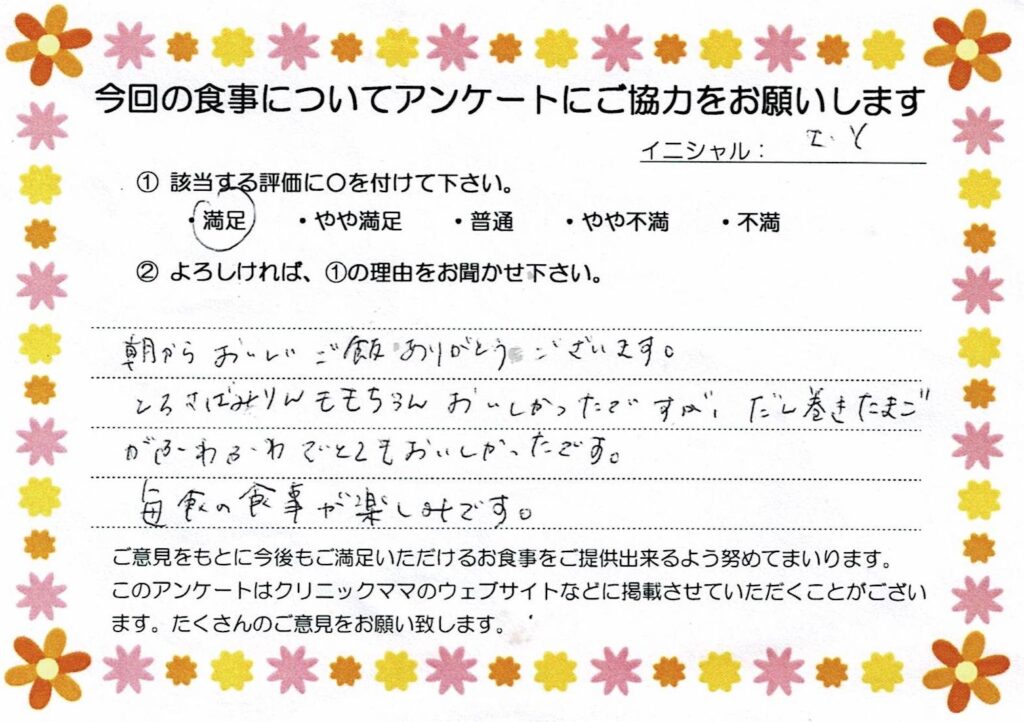 今回の食事についてアンケートにご協力をお願いします
イニシャル： Y
① 該当する評価に〇を付けて下さい。
・満足 ・やや満足 ・普通 ・やや不満 ・不満
② よろしければ、①の理由をお聞かせ下さい。
朝から おいしい ご飯 ありがとう ございます。
とろさばみりんももちろん おいしかったですが、だし巻きたまご
がふわふわでとてもおいしかったです。
毎食の食事が楽しみです。
ご意見をもとに今後もご満足いただけるお食事をご提供出来るよう努めてまいります。
このアンケートはクリニックママのウェブサイトなどに掲載させていただくことがござい
ます。たくさんのご意見をお願い致します。